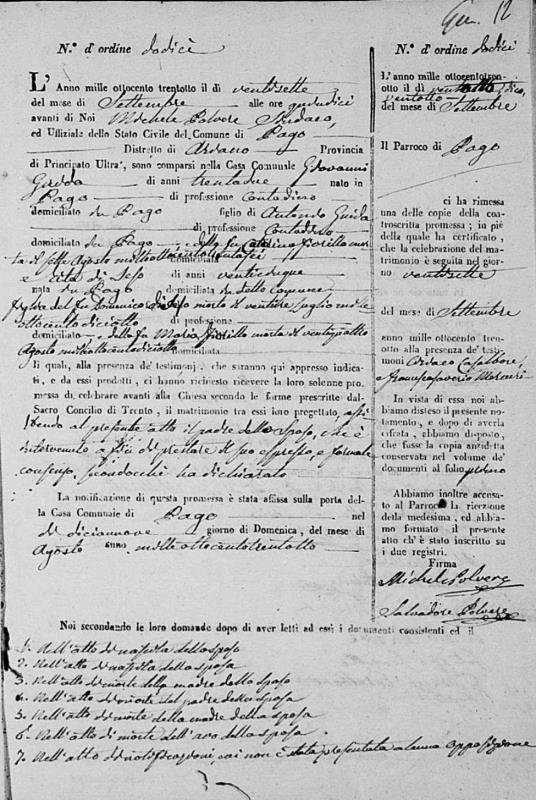 12
N.º d'ordine dodici
L'Anno mille ottocento trentotto il dì ventisette
del mese di Settembre alle ore quindici
avanti di Noi Michele Polvere Sindaco,
ed Uffiziale dello Stato Civile del Comune di Pago
Distretto di Provincia
di Principato Ultra, sono comparsi nella Casa Comunale Giovanni
Giudda di anni trentadue nato in
Pago di professione Contadino
domiciliato in Pago figlio di Antonio Guida
di professione Contadino
domiciliato in Pago e della fu Fiorillo mor
ta il Agosto mille ottocento
e di Seso di anni venticinque
nata in Pago domiciliata in detto Comune
figlia del fu Domenico di Seso morto il ventitre Luglio mille
ottocento diciotto di professione
domiciliato e della fu Maria Fiorillo morta il ventiquattro
Agosto mille ottocento diciotto domiciliata
li quali, alla presenza de' testimonj, che saranno qui appresso indica-
ti, e da essi prodotti, ci hanno richiesto ricevere la loro solenne pro-
messa di celebrare avanti alla Chiesa secondo le forme prescritte dal
Sacro Concilio di Trento, il matrimonio tra essi loro progettato, assi
stendo al presente atto il padre dello sposo, che è
intervenuto a fin di prestare il suo espresso, e formale
consenso, secondocchè ha dichiarato
La notificazione di questa promessa è stata affissa sulla porta del-
la Casa Comunale di Pago nel
dì diciannove giorno di Domenica, del mese di
Agosto anno mille ottocento trentotto
Noi secondando le loro domande dopo di aver letti ad essi i documenti consistenti ed il
1. Nell'atto di nascita dello sposo
2. Nell'atto di nascita della sposa
3. Nell'atto di morte della madre dello sposo
4. Nell'atto di morte del padre della sposa
5. Nell'atto di morte della madre della sposa
6. Nell'atto di morte dell'avo della sposa
7. Nell'atto di notificazione, cui non è stata presentata alcuna opposizione
N.º d'ordine dodici
L'anno mille ottocentotren-
totto il dì ventotto dico
ventotto
del mese di Settembre
Il Parroco di Pago
ci ha rimessa
una delle copie della con-
troscritta promessa; in piè
della quale ha certificato,
che la celebrazione del ma-
trimonio è seguita nel gior-
no ventisette
del mese di Settembre
anno mille ottocento tren-
totto alla presenza de' testi-
monj
e Francescosaverio
In vista di essa noi ab-
biamo disteso il presente no-
tamento, e dopo di averla
cifrata, abbiamo disposto,
che fusse la copia anzidetta
conservata nel volume de'
documenti al folio primo
Abbiamo inoltre accusa-
to al Parroco la ricezione
della medesima, ed abbia-
mo formato il presente
atto ch'è stato inscritto su
i due registri.
Firma
Michele Polvere
Salvadore Polvere